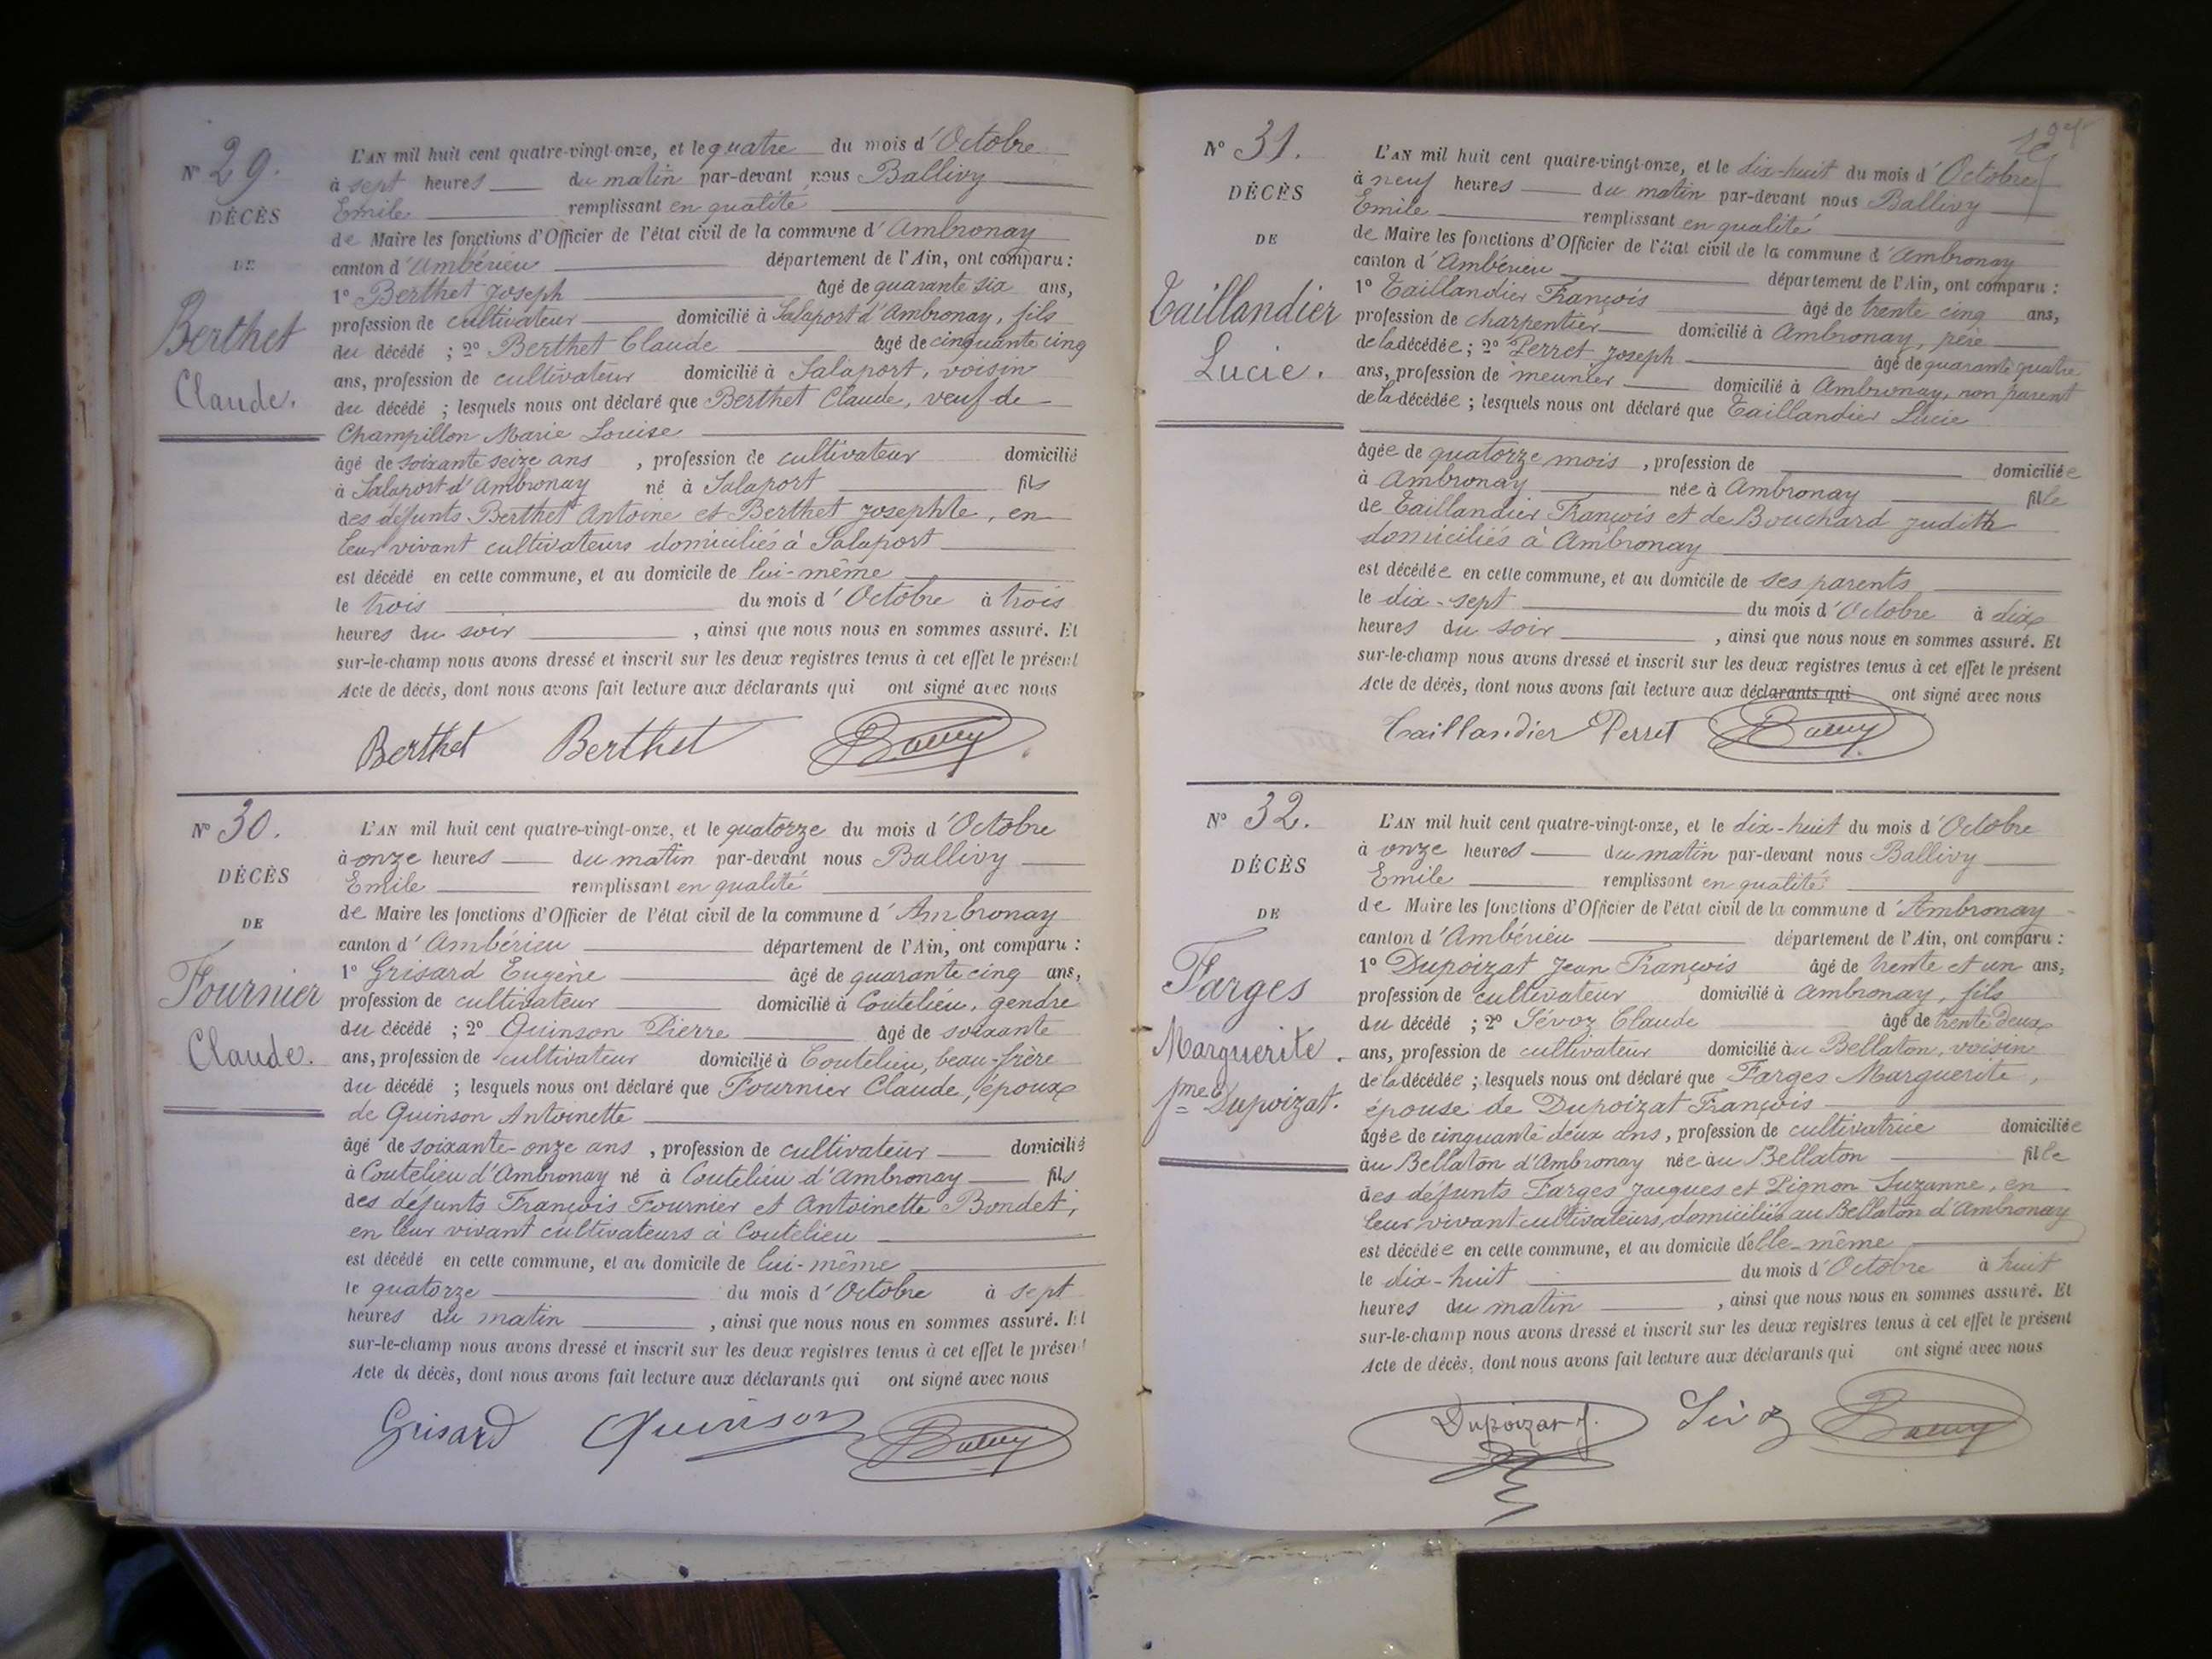 N° 29.
DÉCÈS
DE
Berthet
Claude.
L'AN mil huit cent quatre-vingt-onze, et le quatre du mois d'Octobre
à sept heures du matin par-devant nous Ballivy
Emile remplissant en qualité
de Maire les fonctions d'Officier de l'état civil de la commune d'Ambronay
canton d'Ambérieu département de l'Ain, ont comparu :
1° Berthet Joseph âgé de quarante six ans,
profession de cultivateur domicilié à Salaport d'Ambronay, fils
du décédé ; 2° Berthet Claude âgé de cinquante cinq
ans, profession de cultivateur domicilié à Salaport, voisin
du décédé ; lesquels nous ont déclaré que Berthet Claude, veuf de
Champillon Marie Louise
âgé de soixante seize ans , profession de cultivateur domicilié
à Salaport d'Ambronay né à Salaport fils
des défunts Berthet Antoine et Berthet Josephte, en
leur vivant cultivateurs domiciliés à Salaport
est décédé en cette commune, et au domicile de lui-même
le trois du mois d'Octobre à trois
heures du soir , ainsi que nous nous en sommes assuré. Et
sur-le-champ nous avons dressé et inscrit sur les deux registres tenus à cet effet le présent
Acte de décès, dont nous avons fait lecture aux déclarants qui ont signé avec nous
Berthet Berthet
N° 30.
DÉCÈS
DE
Fournier
Claude.
L'AN mil huit cent quatre-vingt-onze, et le quatorze du mois d'Octobre
à onze heures du matin par-devant nous Ballivy
Emile remplissant en qualité
de Maire les fonctions d'Officier de l'état civil de la commune d'Ambronay
canton d'Ambérieu département de l'Ain, ont comparu :
1° Grisard Eugène âgé de quarante cinq ans,
profession de cultivateur domicilié à Coutelieu, gendre
du décédé ; 2° Quinson Pierre âgé de soixante
ans, profession de cultivateur domicilié à Coutelieu, beau-frère
du décédé ; lesquels nous ont déclaré que Fournier Claude, époux
de Quinson Antoinette
âgé de soixante-onze ans , profession de cultivateur domicilié
à Coutelieu d'Ambronay né à Coutelieu d'Ambronay fils
des défunts François Fournier et Antoinette Bondet,
en leur vivant cultivateurs à Coutelieu
est décédé en cette commune, et au domicile de lui-même
le quatorze du mois d'Octobre à sept
heures du matin , ainsi que nous nous en sommes assuré. Et
sur-le-champ nous avons dressé et inscrit sur les deux registres tenus à cet effet le présent
Acte de décès, dont nous avons fait lecture aux déclarants qui ont signé avec nous
Grisard Quinson
N° 31.
DÉCÈS
DE
Taillandier
Lucie.
L'AN mil huit cent quatre-vingt-onze, et le dix-huit du mois d'Octobre
à neuf heures du matin par-devant nous Ballivy
Emile remplissant en qualité
de Maire les fonctions d'Officier de l'état civil de la commune d'Ambronay
canton d'Ambérieu département de l'Ain, ont comparu :
1° Taillandier François âgé de trente cinq ans,
profession de charpentier domicilié à Ambronay, père
de la décédée ; 2° Perret Joseph âgé de quarante quatre
ans, profession de meunier domicilié à Ambronay, non parent
de la décédée ; lesquels nous ont déclaré que Taillandier Lucie
âgée de quatorze mois , profession de domiciliée
à Ambronay née à Ambronay fille
de Taillandier François et de Bouchard Judith
domiciliés à Ambronay
est décédée en cette commune, et au domicile de ses parents
le dix-sept du mois d'Octobre à dix
heures du soir , ainsi que nous nous en sommes assuré. Et
sur-le-champ nous avons dressé et inscrit sur les deux registres tenus à cet effet le présent
Acte de décès, dont nous avons fait lecture aux déclarants qui ont signé avec nous
Taillandier Perret
N° 32.
DÉCÈS
DE
Farges
Marguerite.
fme Dupoizat.
L'AN mil huit cent quatre-vingt-onze, et le dix-huit du mois d'Octobre
à onze heures du matin par-devant nous Ballivy
Emile remplissant en qualité
de Maire les fonctions d'Officier de l'état civil de la commune d'Ambronay
canton d'Ambérieu département de l'Ain, ont comparu :
1° Dupoizat Jean François âgé de trente et un ans,
profession de cultivateur domicilié à Ambronay, fils
du décédé ; 2° Sévoz Claude âgé de trente deux
ans, profession de cultivateur domicilié au Bellaton, voisin
de la décédée ; lesquels nous ont déclaré que Farges Marguerite,
épouse de Dupoizat François
âgée de cinquante deux ans, profession de cultivatrice domiciliée
au Bellaton d'Ambronay née au Bellaton fille
des défunts Farges Jacques et Pignon Suzanne, en
leur vivant cultivateurs, domiciliés au Bellaton d'Ambronay
est décédée en cette commune, et au domicile d'elle-même
le dix-huit du mois d'Octobre à huit
heures du matin , ainsi que nous nous en sommes assuré. Et
sur-le-champ nous avons dressé et inscrit sur les deux registres tenus à cet effet le présent
Acte de décès, dont nous avons fait lecture aux déclarants qui ont signé avec nous
Dupoizat J.